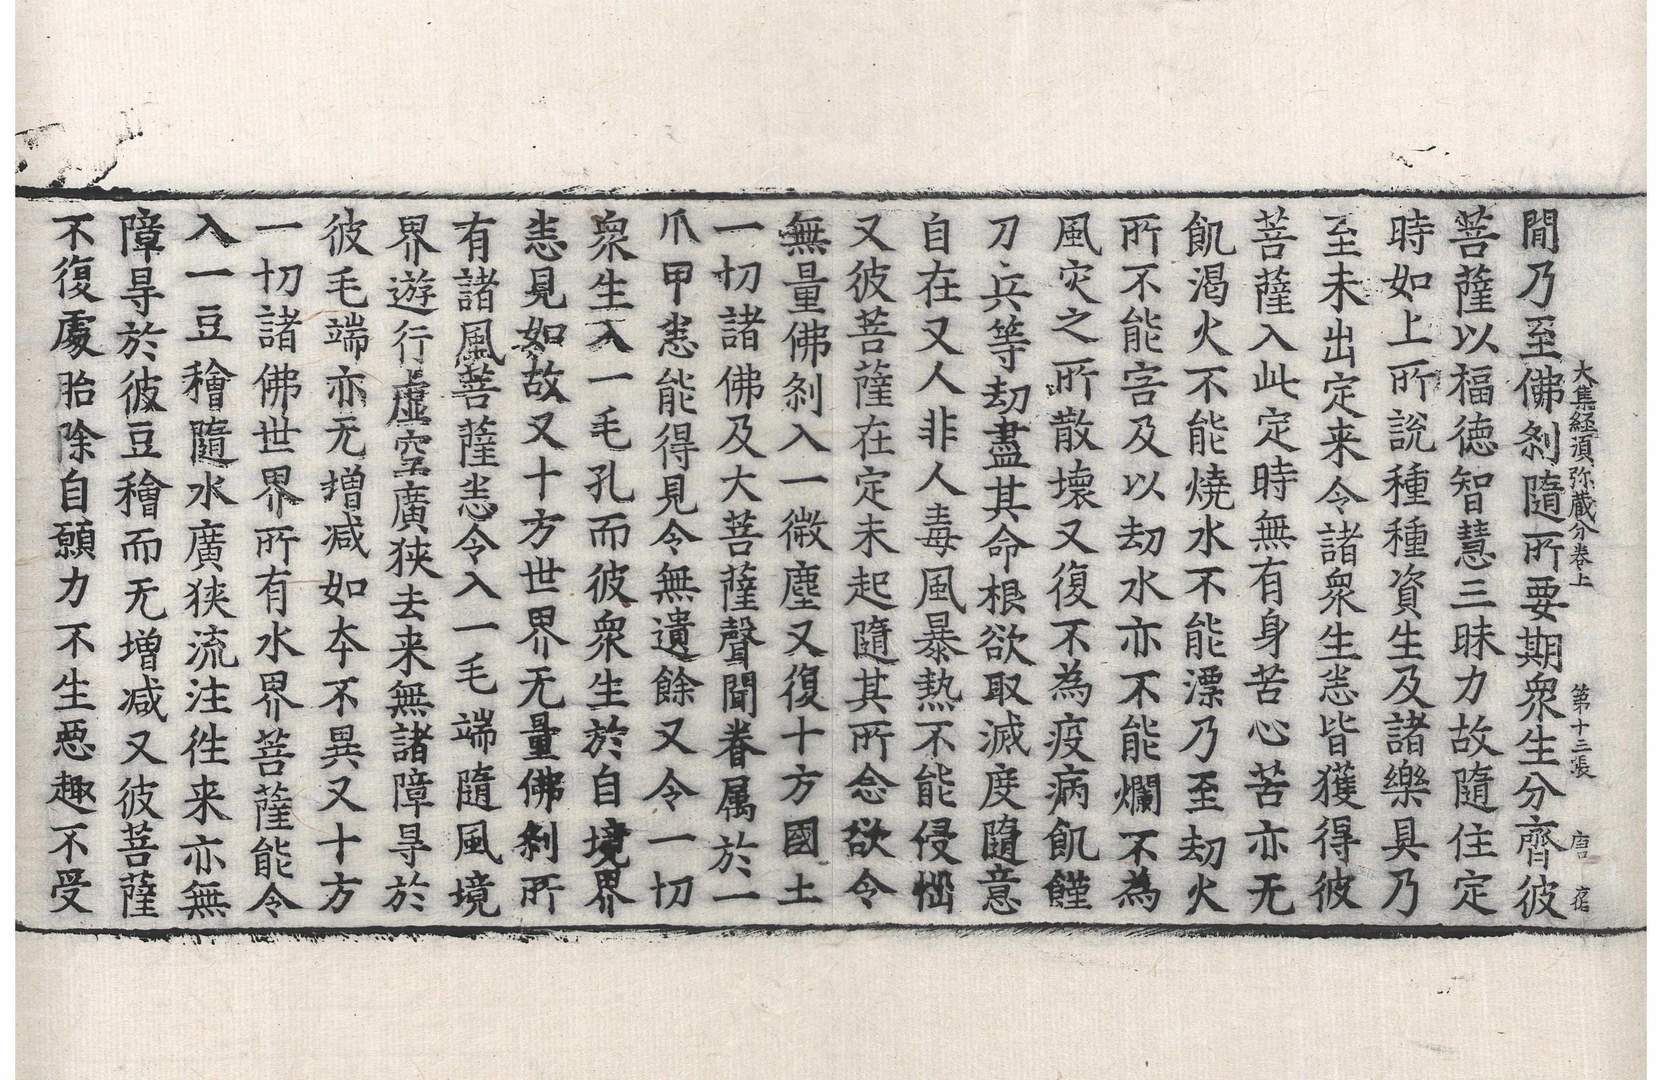 大集経湏弥蔵分卷上　第十三張　唐
間乃至佛刹隨所要期衆生分齊彼
菩薩以福徳智慧三昧力故隨住定
時如上所說種種資生及諸樂具乃
至未出定来令諸衆生㤙皆獲得彼
菩薩入此定時無有身苦心苦亦无
飢渇火不能燒水不能漂乃至劫火
所不能害及以劫水亦不能爛不為
風灾之所散壞又復不為疫病飢饉
刀兵等劫盡其命根欲取滅度隨意
自在又人非人毒風暴熱不能侵惱
又彼菩薩在定未起隨其所念欲令
無量佛刹入一微塵又復十方國土
一切諸佛及大菩薩聲聞眷属於一
爪甲㤙能得見令無遺餘又令一切
衆生入一毛孔而彼衆生於自境界
㤙見如故又十方世界无量佛刹所
有諸風菩薩㤙令入一毛端隨風境
界遊行虚空廣狹去来無諸障㝵於
彼毛端亦无増减如夲不異又十方
一切諸佛世界所有水界菩薩能令
入一豆穭隨水廣狹流注徃来亦無
障㝵於彼豆穭而无増减又彼菩薩
不復處胎除自願力不生惡趣不受